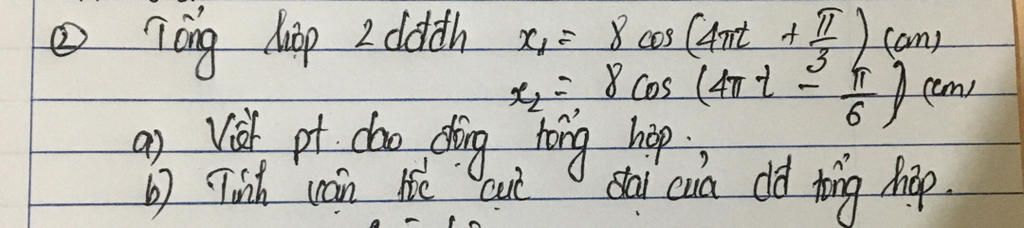 ② Tổng hợp 2 dđđh x₁ = 8 cos (4πt + π/3) (cm)
x₂ = 8 cos (4πt - π/6) (cm)
a) Viết pt. dao động tổng hợp.
b) Tính vận tốc cực đại của dđ tổng hợp.